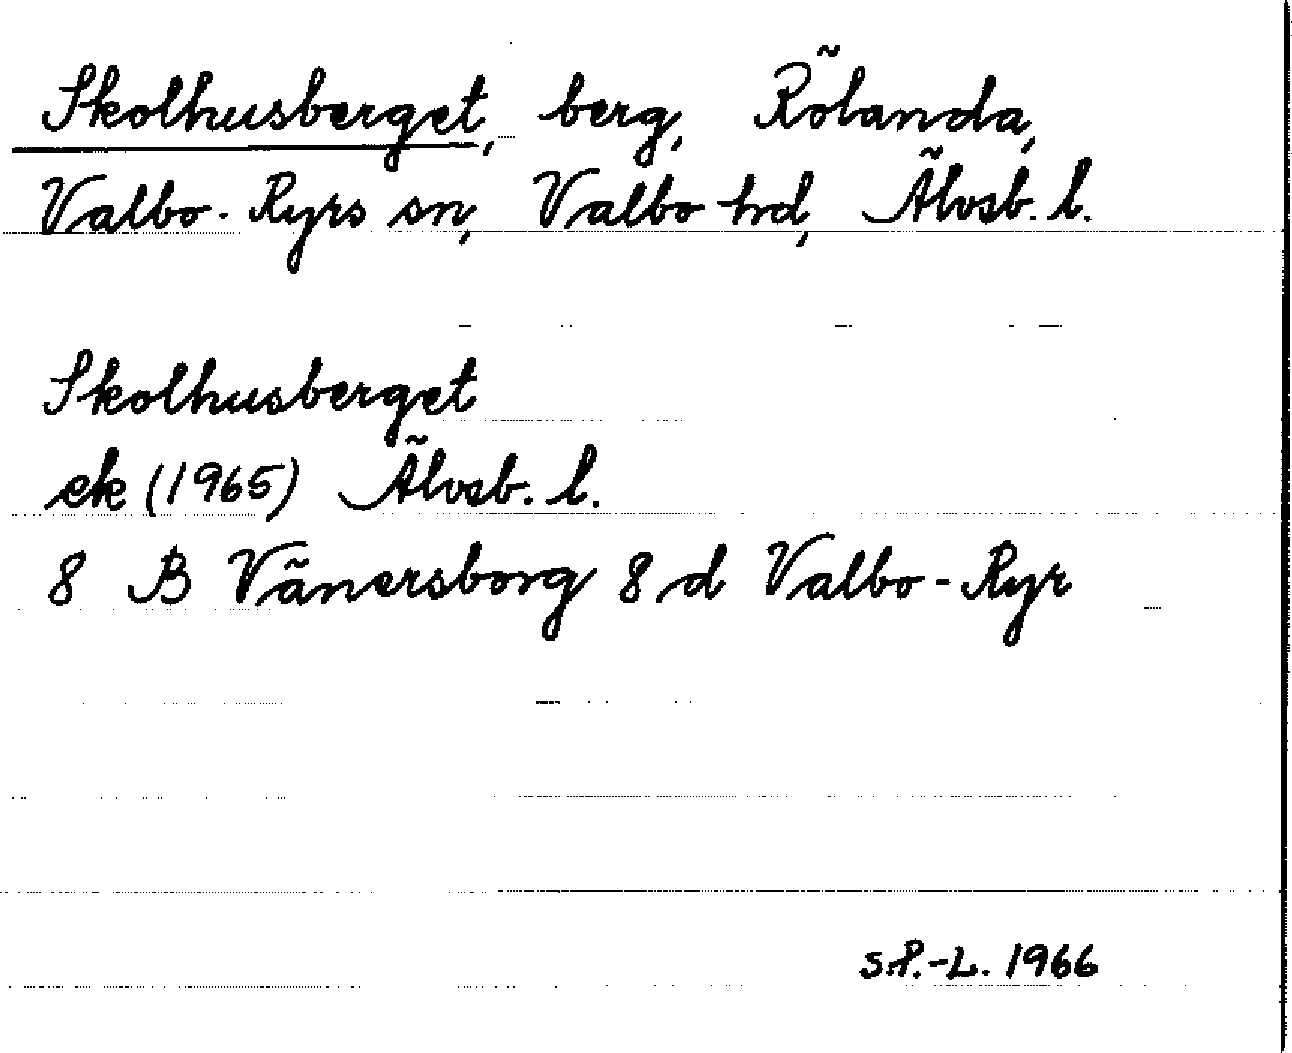 Skolhusberget, berg, Rölanda,
Valbo-Ryrs sn, Valbo hd, Älvsb. l.
Skolhusberget
ek (1965) Älvsb. l.
8 B Vänersborg 8 d Valbo-Ryr
S.P.-L. 1966